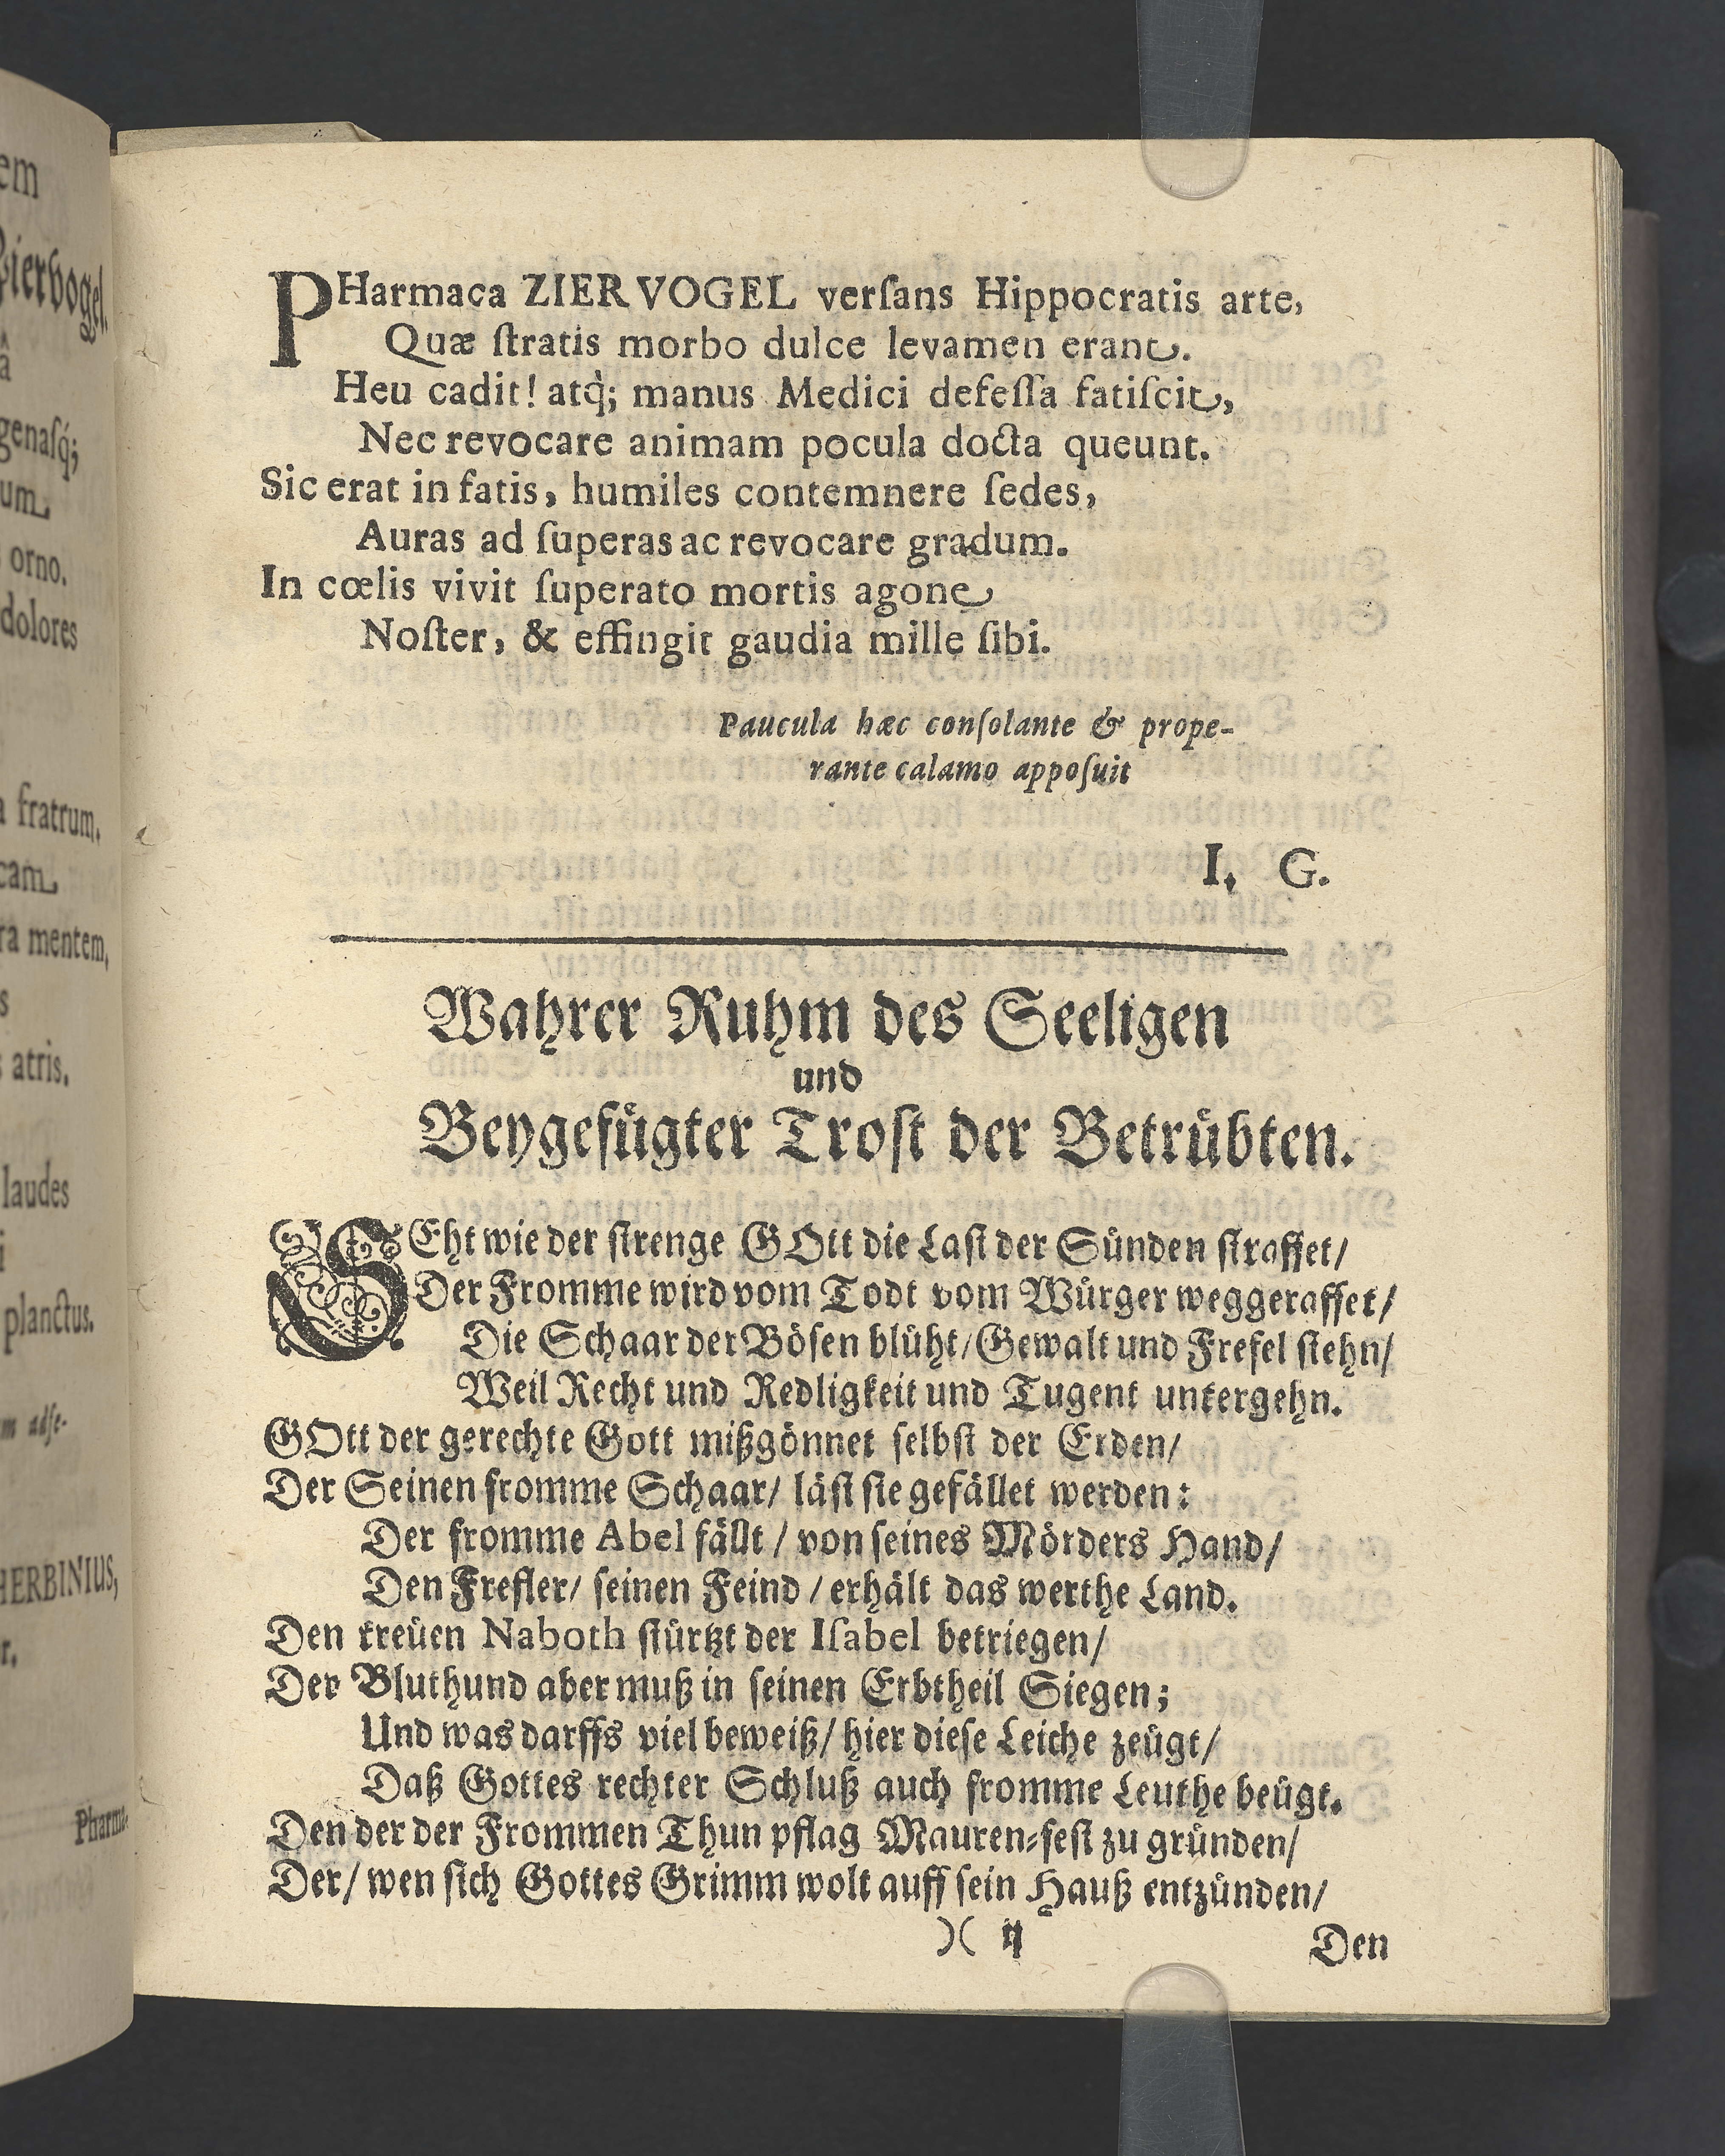 PHarmaca ZIERVOGEL verſans Hippocratis arte,
Quæ ſtratis morbo dulce levamen erant.
Heu cadit! atq̀; manus Medici defeſſa fatiſcit,
Nec revocare animam pocula docta queunt.
Sic erat in fatis, humiles contemnere ſedes,
Auras ad ſuperas ac revocare gradum.
In cœlis vivit ſuperato mortis agone
Noſter, & effingit gaudia mille ſibi.
Paucula hæc conſolante & prope-
rante calamo appoſuit
I. G.
Wahrer Ruhm des Seeligen
und
Beygefügter Troſt der Betrübten.
SEht wie der ſtrenge GOtt die Laſt der Sünden ſtraffet/
Der Fromme wird vom Todt vom Würger weggeraffet/
Die Schaar der Böſen blüht/Gewalt und Frefel ſtehn/
Weil Recht und Redligkeit und Tugent untergehn.
GOtt der gerechte Gott mißgönnet ſelbſt der Erden/
Der Seinen fromme Schaar/ läſt ſie gefället werden:
Der fromme Abel fällt / von ſeines Mörders Hand/
Den Frefler/ ſeinen Feind / erhält das werthe Land.
Den treüen Naboth ſtürtzt der Iſabel betriegen/
Der Bluthund aber muß in ſeinen Erbtheil Siegen;
Und was darffs viel beweiß/ hier dieſe Leiche zeügt/
Daß Gottes rechter Schluß auch fromme Leuthe beügt.
Den der der Frommen Thun pflag Mauren-feſt zu gründen/
Der/ wen ſich Gottes Grimm wolt auff ſein Hauß entzünden/
)( ij
Den
em
Ziervogel.
â
genaſq́;
um
orno.
dolores
fratrum,
cam
ra mentem,
s
atris.
laudes
i
planctus.
m adſe-
HERBINIUS,
r.
Pharma-